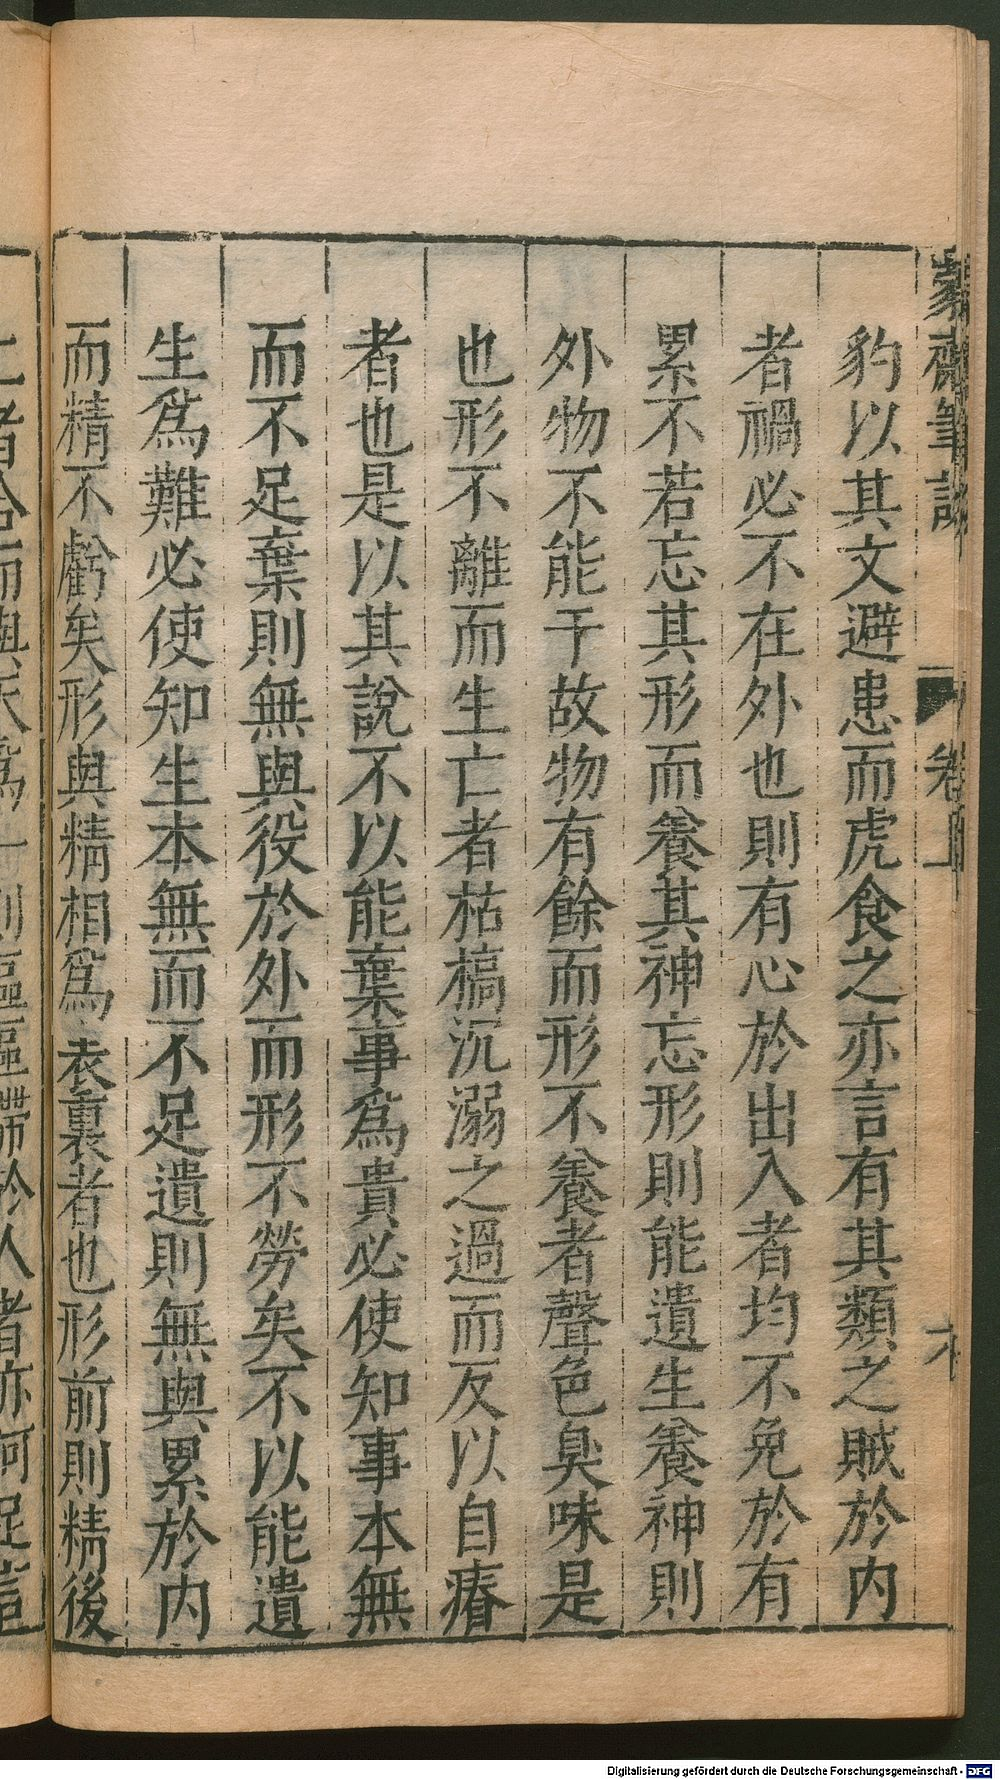 蒙齋筆談
卷上
豹以其文避患而虎食之亦言有其類之賊於內
者禍必不在外也則有心於出入者均不免於有
累不若忘其形而養其神忘形則能遺生養神則
外物不能干故物有餘而形不養者聲色臭味是
也形不離而生亡者枯槁沉溺之過而反以自瘠
者也是以其說不以能棄事爲貴必使知事本無
而不足棄則無與役於外而形不勞矣不以能遺
生爲難必使知生本無而不足遺則無與累於內
而精不虧矣形與精相爲表裏者也形前則精後
二者合而與天爲一則區區滯於人者亦何足言
Digitalisierung gefördert durch die Deutsche Forschungsgemeinschaft - DFG